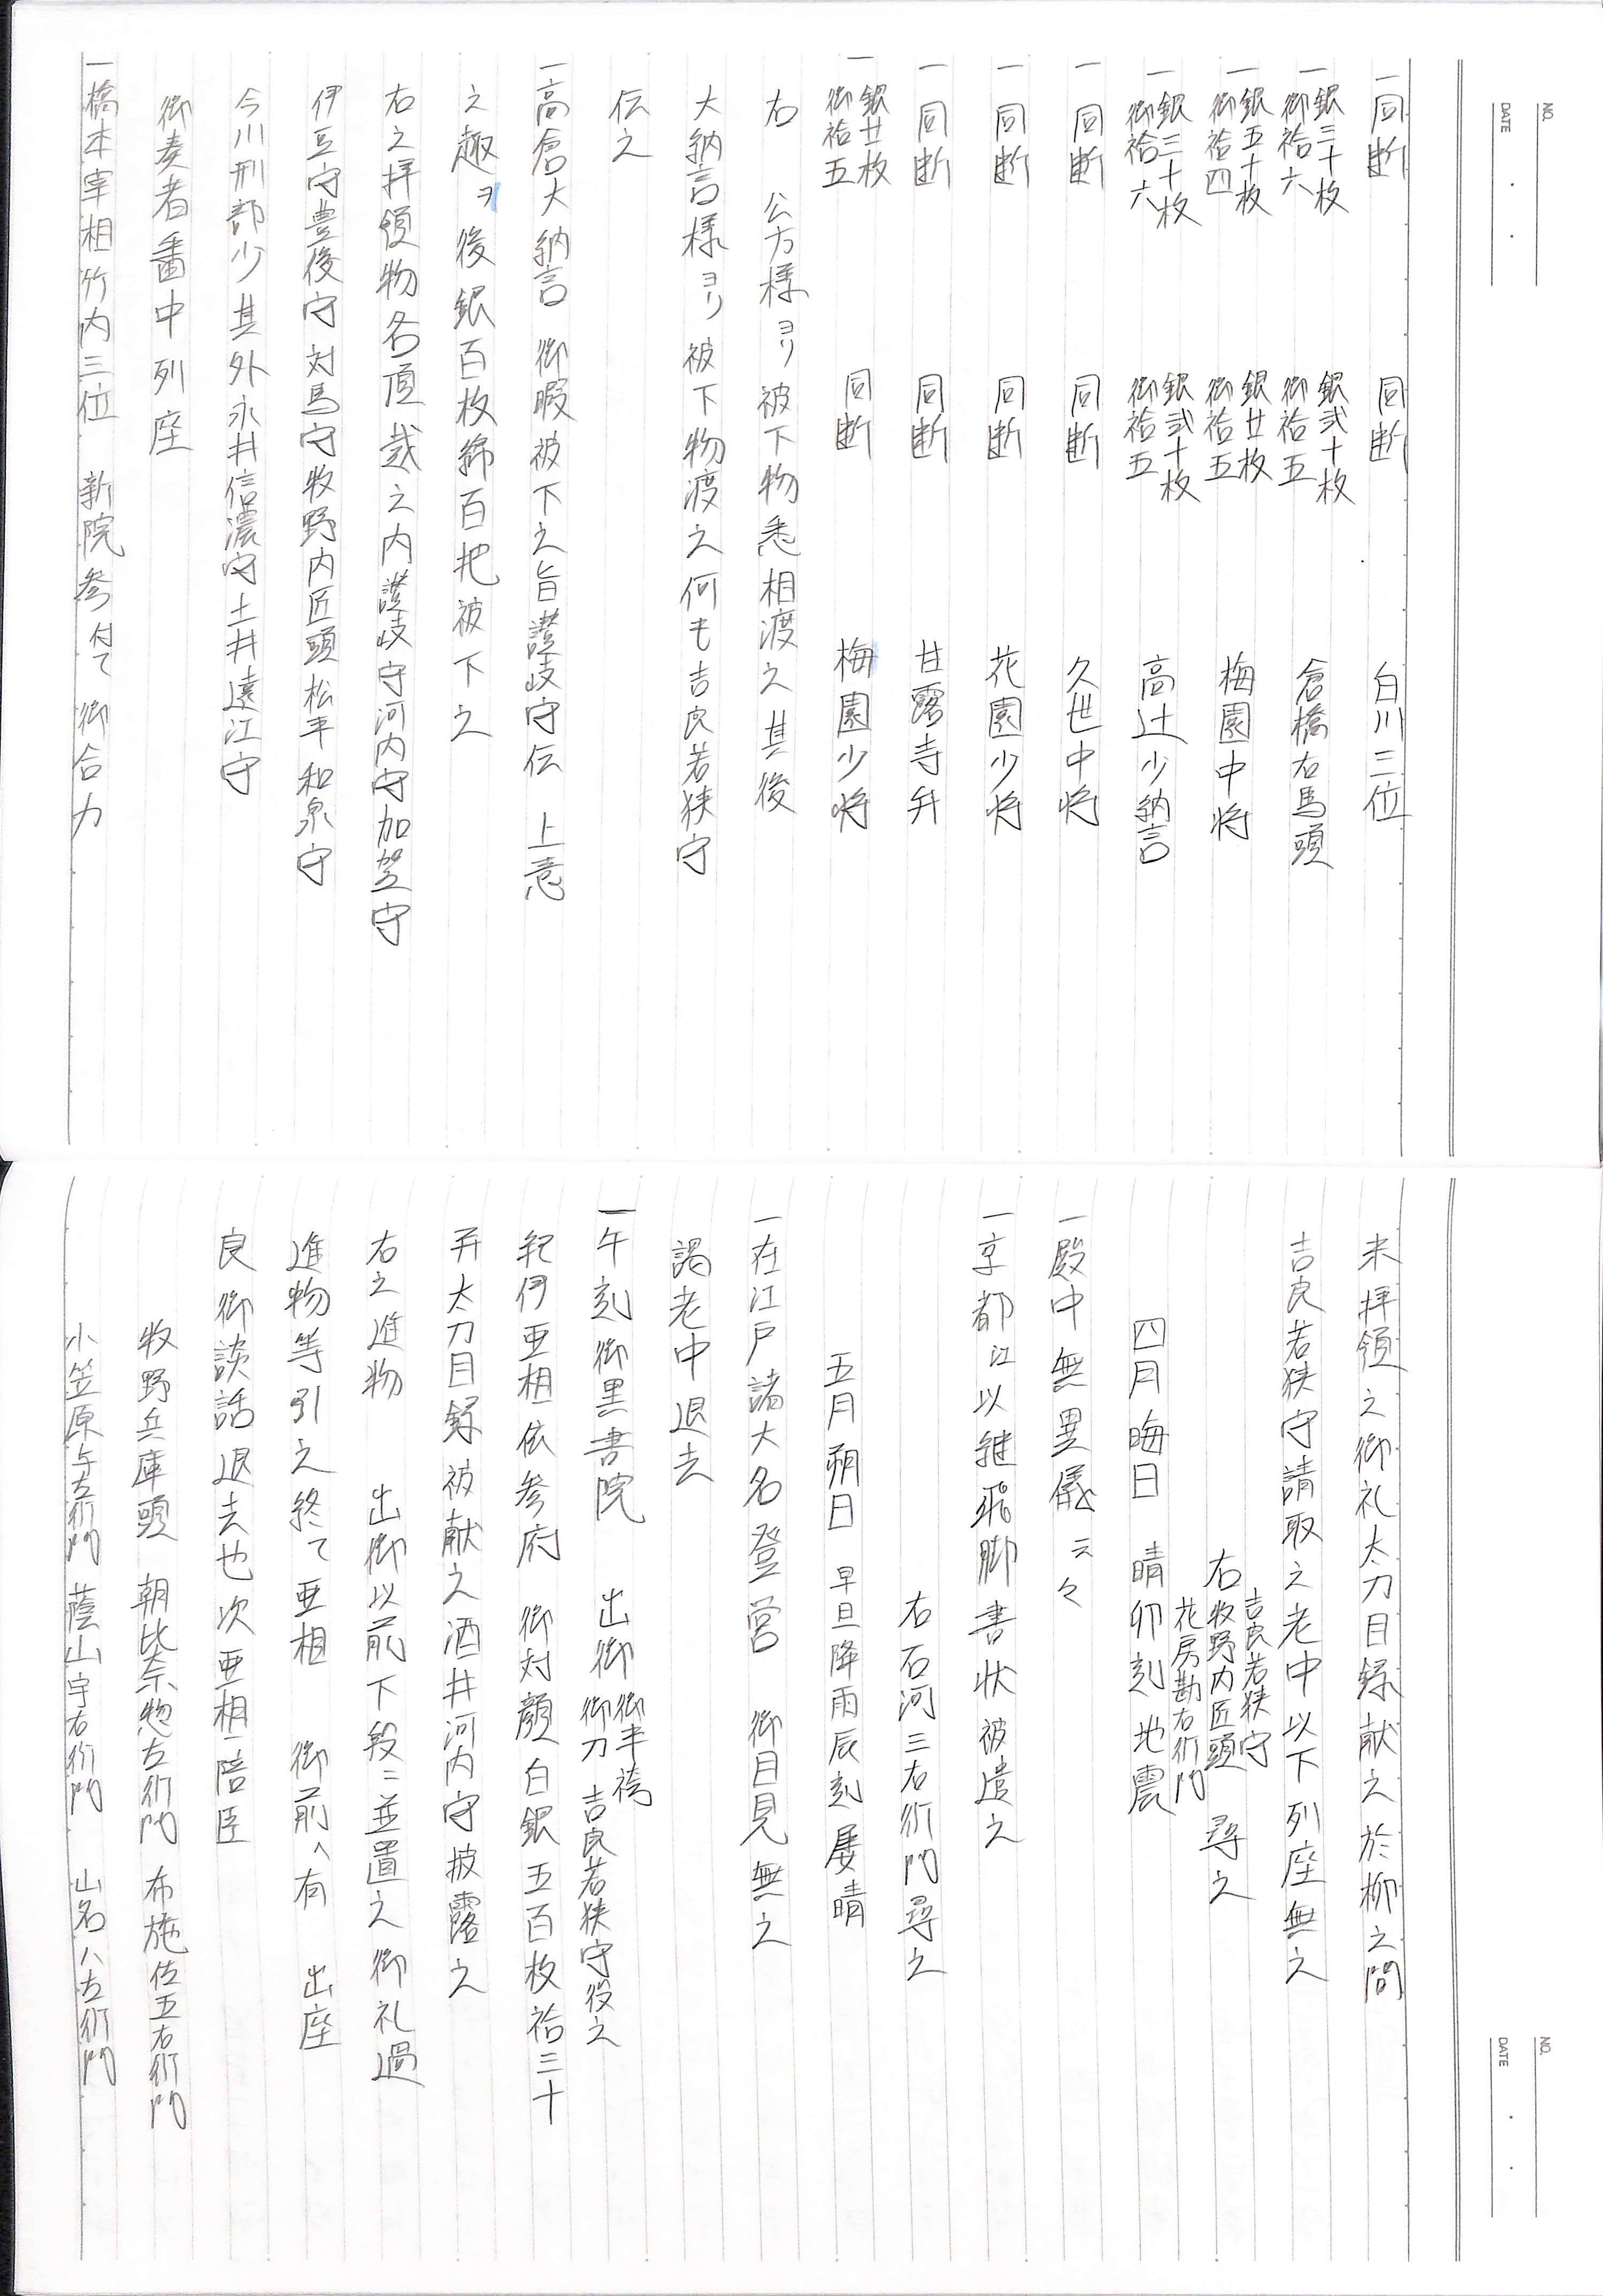 NO.
DATE
一同断　同断　白川三位
一銀三十枚　御袷六　銀弐十枚　御袷五　倉橋右馬頭
一銀五十枚　御袷四　銀廿枚　御袷五　梅園中将
一銀三十枚　御袷六　銀弐十枚　御袷五　高辻少納言
一同断　同断　久世中将
一同断　同断　花園少将
一同断　同断　甘露寺弁
一銀廿枚　御袷五　同断　梅園少将
右　公方様ヨリ被下物悉相渡之其後
大納言様ヨリ被下物渡之何モ吉良若狭守
伝之
一高倉大納言　御暇被下之旨讃岐守伝　上意
之趣ヲ後銀百枚綿百把被下之
右之拝領物各頂戴之内讃岐守河内守加賀守
伊豆守豊後守対馬守牧野内匠頭松平和泉守
今川刑部少其外永井信濃守土井遠江守
御奏者番中列座
一橋本宰相竹内三位　新院参付て　御合力
NO.
DATE
米拝領之御礼太刀目録献之於柳之間
吉良若狭守請取之老中以下列座無之
吉良若狭守
右牧野内匠頭　尋之
花房勘右衛門
四月晦日　晴卯刻地震
一殿中無異儀云々
一京都江以継飛脚書状被遣之
右石河三右衛門尋之
五月朔日　早旦降雨辰刻屡晴
一在江戸諸大名登営　御目見無之
謁老中退去
一午刻御黒書院　出御　御半袴　御刀吉良若狭守役之
紀伊亜相依参府　御対顔白銀五百枚袷三十
并太刀目録被献之酒井河内守披露之
右之進物　出御以前下段ニ並置之御礼過
進物等引之終て亜相　御前へ有　出座
良御談話退去也次亜相陪臣
牧野兵庫頭　朝比奈惣左衛門　布施佐五右衛門
小笠原与左衛門　蔭山宇右衛門　山名八左衛門